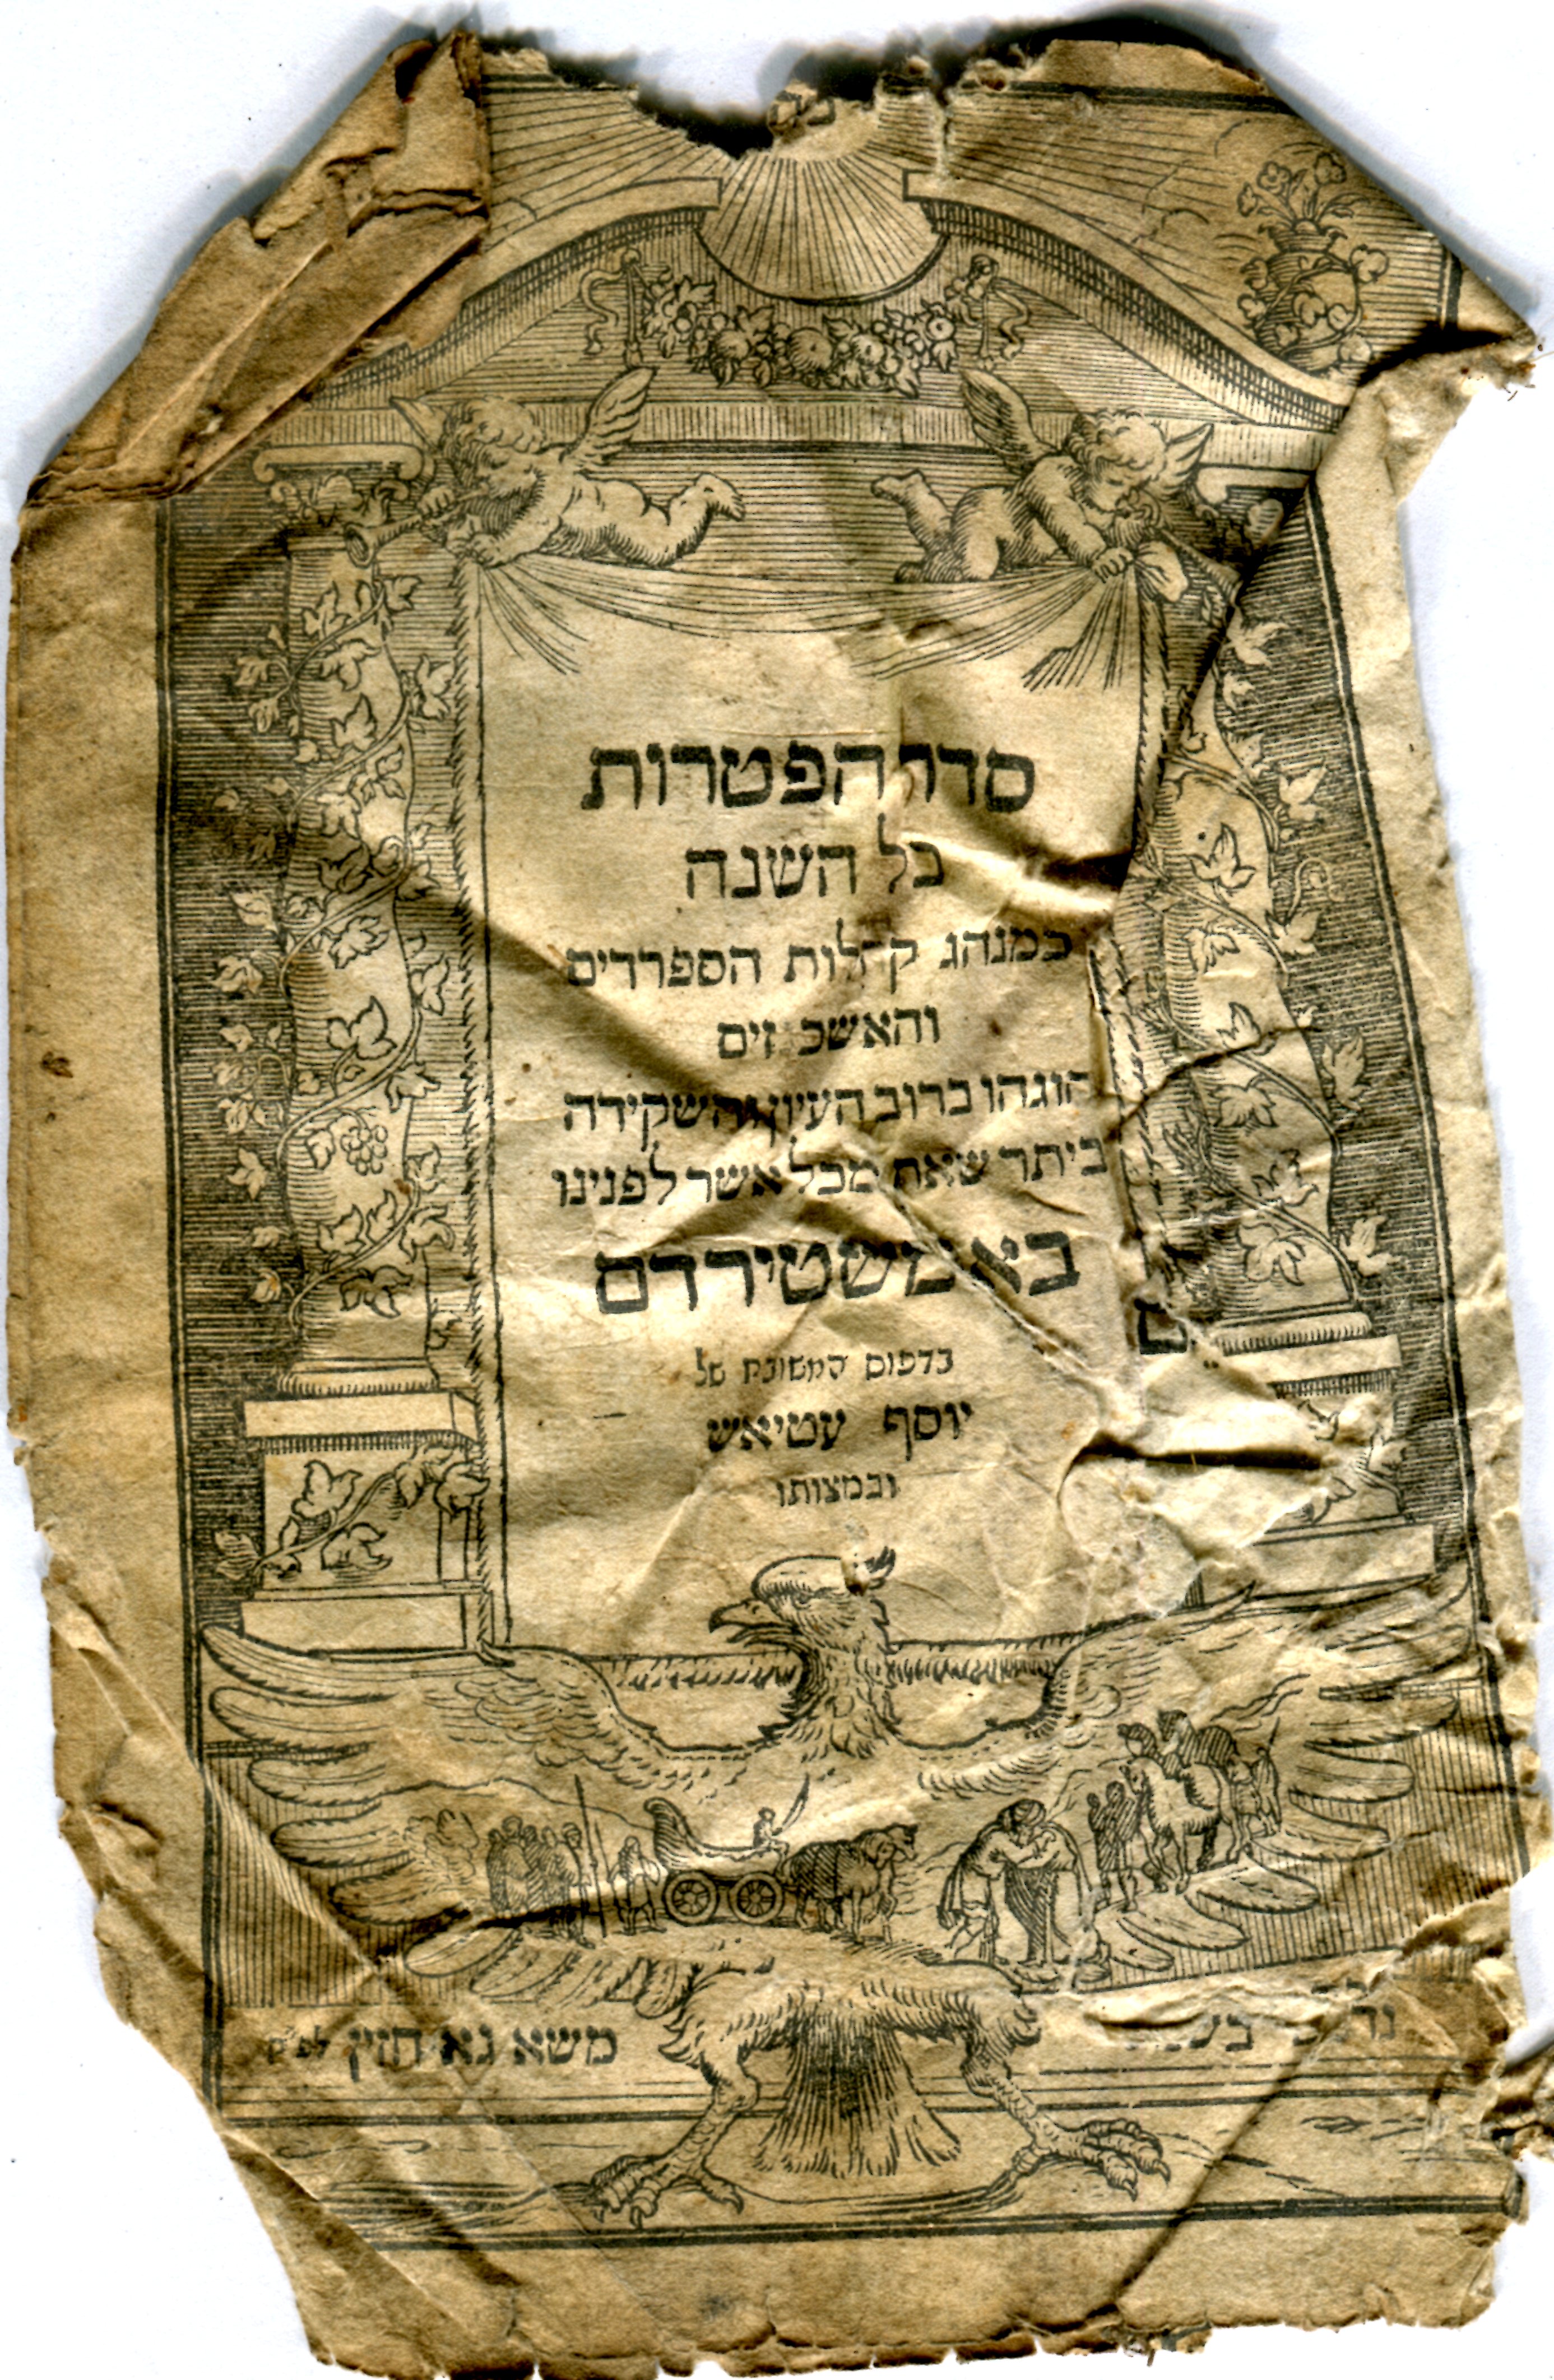 סדר הפטרות
כל השנה
כמנהג קהלות הספרדים
והאשכנזים
הוגהו ברוב העיון והשקידה
ביתר שאת מכל אשר לפנינו
באמשטירדם
בדפוס המשובח של
יוסף עטיאש
ובמצותו
משא גא חזיון לפ"ק